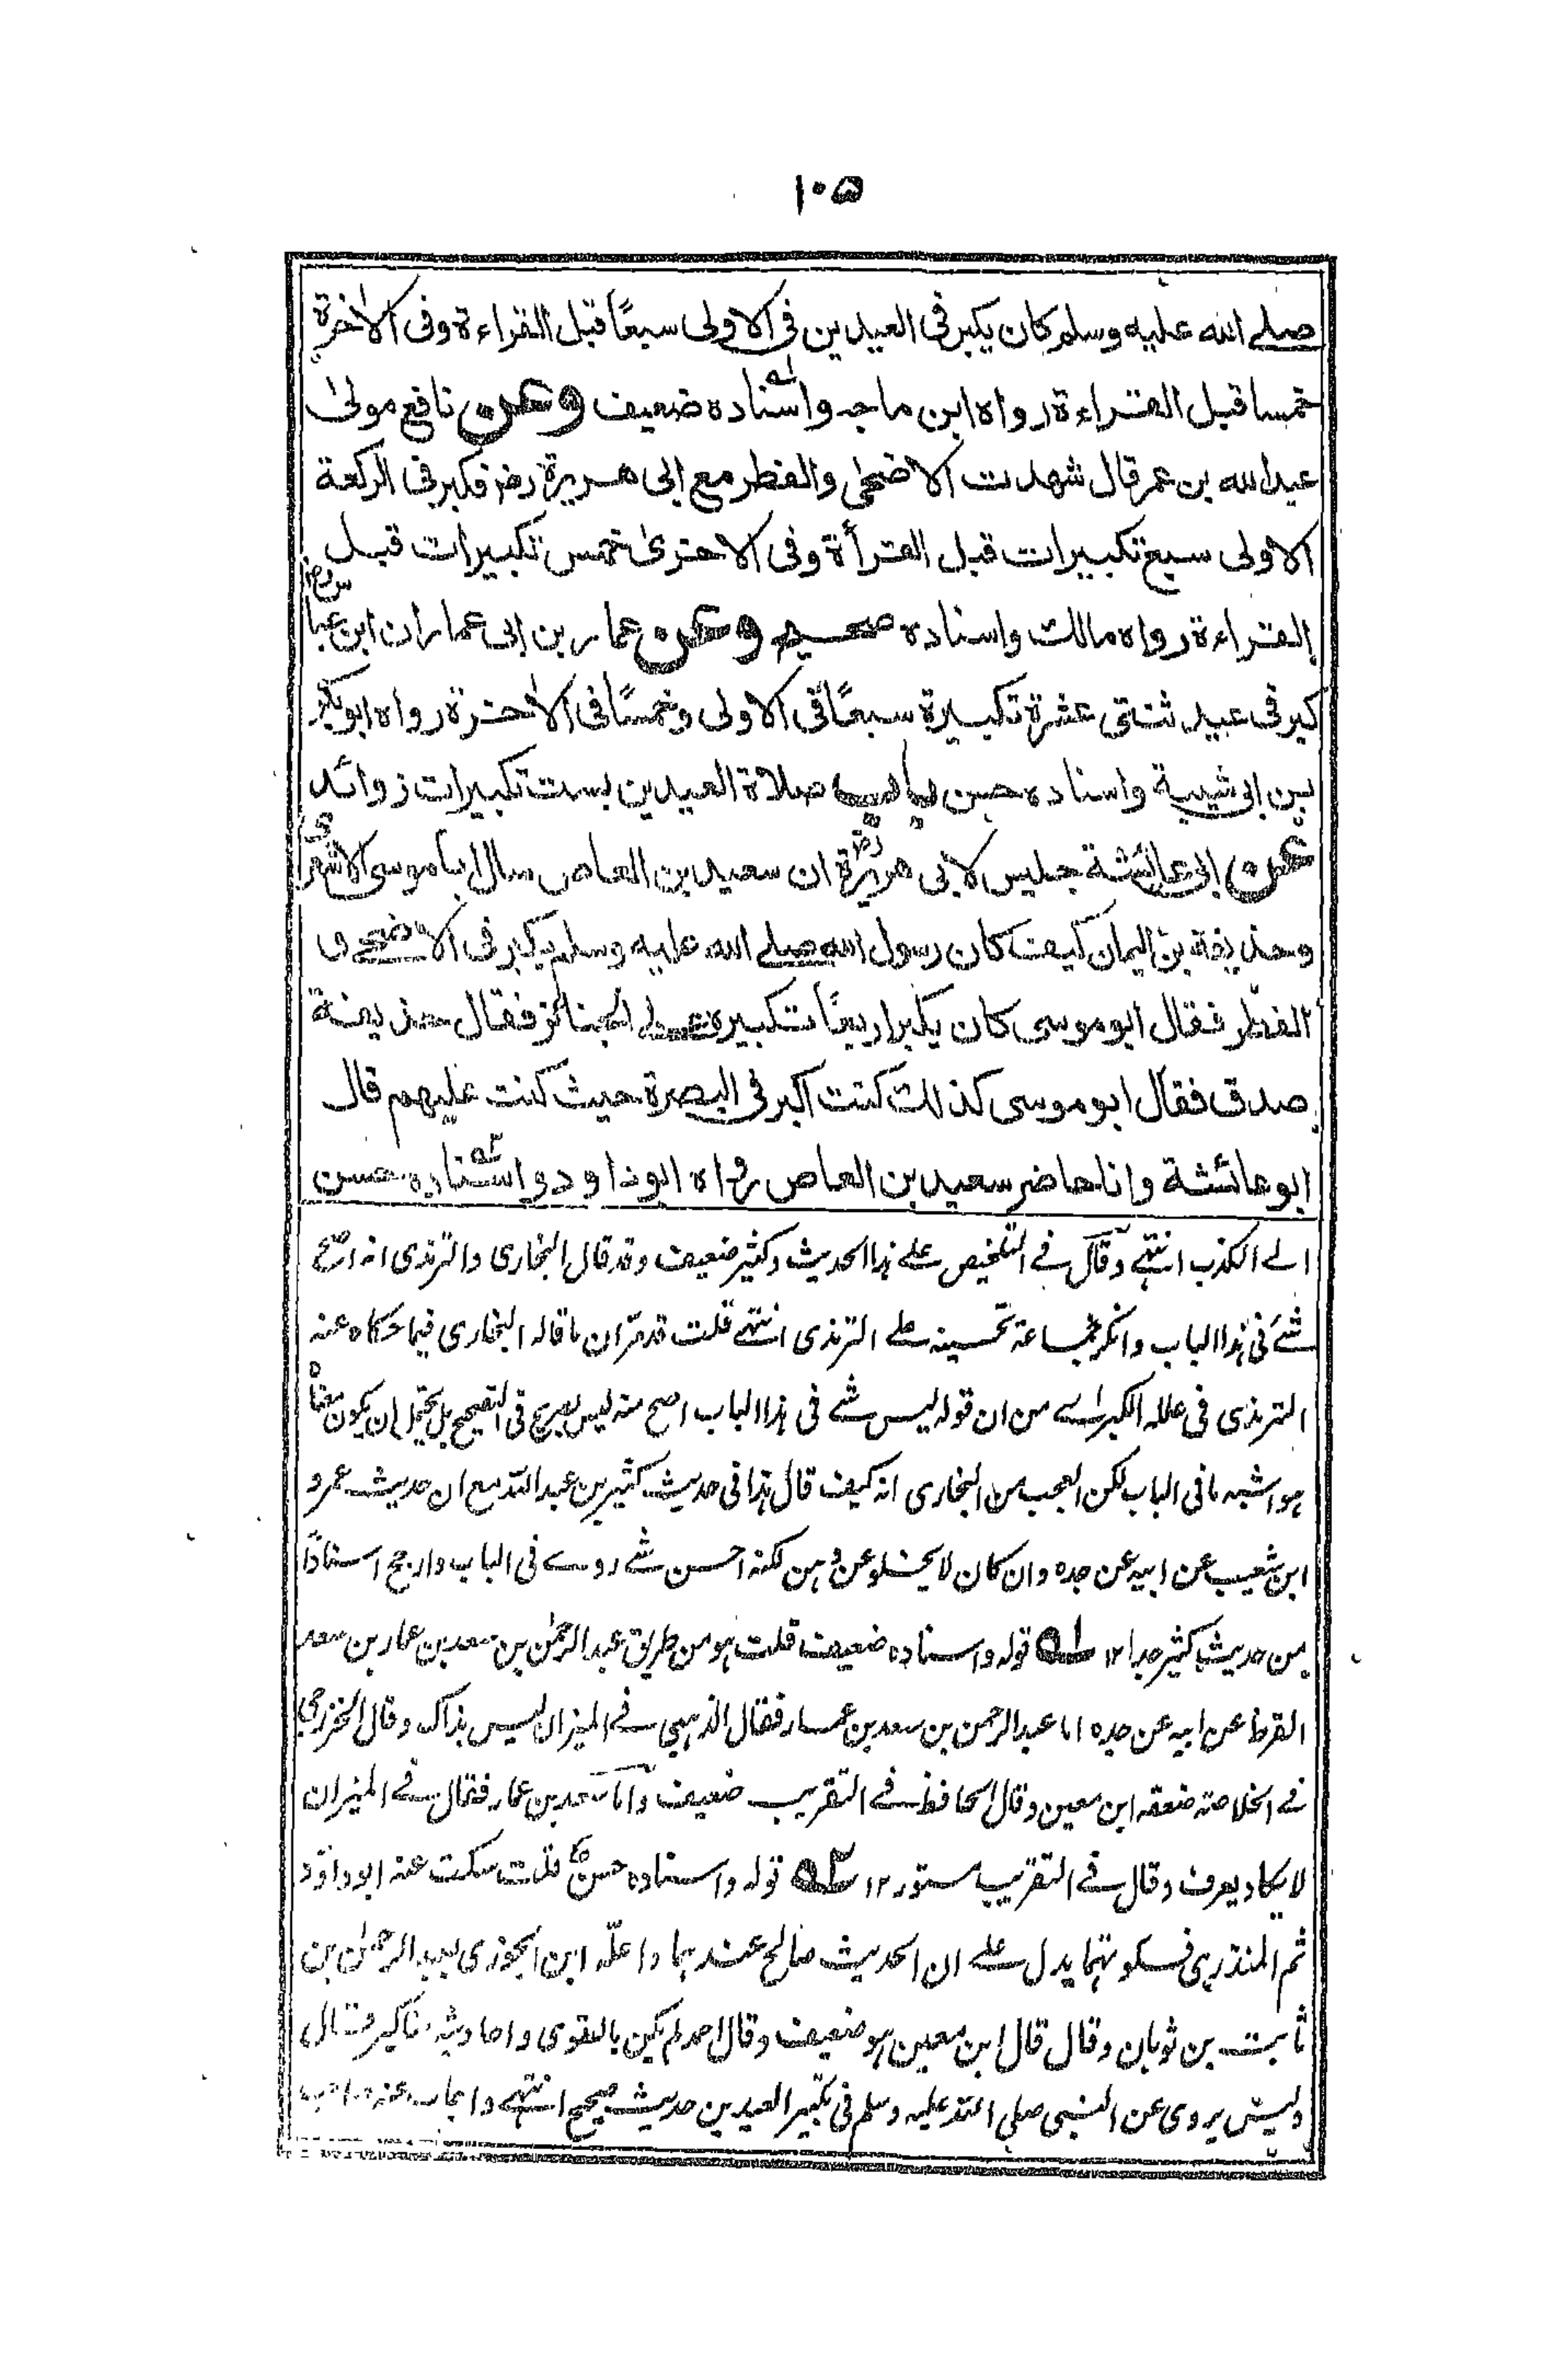 ١٠٥
صلے الله عليه وسلم كان يكبر في العيدين في الاولى سبعًا قبل القراءة وفى الآخرة
خمسا قبل القراءة رواه ابن ماجه واسناده ضعيف وعن نافع مولى
عبد الله بن عمر قال شهدت الاضحٰى والفطر مع ابى هريرة رض فكبر فى الركعة
الاولى سبع تكبيرات قبل القرأة وفى الاخرىٰ خمس تكبيرات قبل
القراءة رواه مالك واسناده صحيح وعن عمار بن ابى عمار ان ابن عباس رض
كبر فى عيد ثنتى عشرة تكبيرة سبعًا فى الاولى وخمسًا فى الآخرة رواه ابو بكر
بن ابى شيبة واسناده حسن باب صلاة العيدين بست تكبيرات زوائد
عن ابى عائشة جليس لابى هريرة رض ان سعيد بن العاص سال ابا موسى الاشعرى
وحذيفة بن اليمان كيف كان رسول الله صلے الله عليه وسلم يكبر فى الاضحى و
الفطر فقال ابو موسى كان يكبر اربعًا تكبيره على الجنائز فقال حذيفة
صدق فقال ابو موسى كذلك كنت اكبر فى البصرة حيث كنت عليهم قال
ابو عائشة وانا حاضر سعيد بن العاص رواه ابو داود واسناده حسن
الے الكذب انتهے وقال فے التلخيص علے هذا الحديث وكثير ضعيف وقد قال البخارى والترمذى انه اصح
شئ فى هذا الباب وانكر جماعة تحسينه علے الترمذى انتهے قلت قد مر ان ما قاله البخارى فيما حكاه عنه
الترمذى فى علله الكبراے من ان قوله ليس شے فى هذا الباب اصح منه ليس بصريح فى التصحيح بل يحتمل ان يكون معناه
هو اشبه ما فى الباب لكن العجب من البخارى انه كيف قال هذا فى حديث كثير بن عبد الله مع ان حديث عمرو
ابن شعيب عن ابيه عن جده وان كان لا يخلو عن وهن لكنه احسن شے روے فى الباب وارجح اسنادًا
من حديث كثير جدا ١٢ قوله واسناده ضعيف قلت هو من طريق عبد الرحمٰن بن سعد بن عمار بن سعد
القرظ عن ابيه عن جده اما عبد الرحمن بن سعد بن عمار فقال الذهبى فے الميزان ليس بذاك وقال الخزرجى
فے الخلاصة ضعفه ابن معين وقال الحافظ فے التقريب ضعيف واما سعد بن عمار فقال فے الميزان
لا يكاد يعرف وقال فے التقريب مستور ١٢ قوله واسناده حسن قلت سكت عنه ابو داؤد
ثم المنذرى فسكوتهما يدل علے ان الحديث صالح عندهما واعلّه ابن الجوزى بعبد الرحمٰن بن
ثابت بن ثوبان وقال قال ابن معين هو ضعيف وقال احمد لم يكن بالقوى واحاديثه مناكير قال
وليس يروى عن النبى صلى الله عليه وسلم فى تكبير العيدين حديث صحيح انتهے واجاب عنه